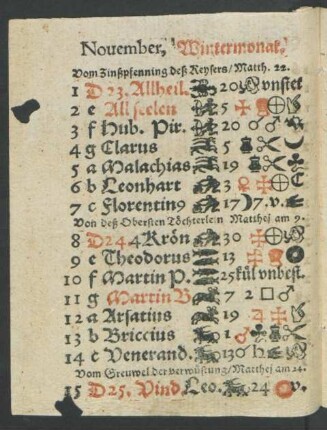 Nouember, Wintermonat.
Vom Zinßpfenning deß Keysers / Matth. 22.
1 D 23. Allheil. 20 Vnstet
2 e All seelen 5
3 f Hub. Pir. 20 ♂ ♂
4 g Clarus 5
5 a Malachias 19
6 b Leonhart 3 ♀
7 c Florentin9 17 7. v.
Von deß Obersten Töchterlein Matthej am 9.
8 D 24. 4 Krön 30
9 e Theodorus 13
10 f Martin P. 25 kül vnbest.
11 g Martin B 7 2 □ ♂
12 a Arsatius 19
13 b Briccius 1
14 c Venerand. 13
Vom Greuwel der verwüstung / Matthej am 24.
15 D 25. Vind Leo. 24 v.